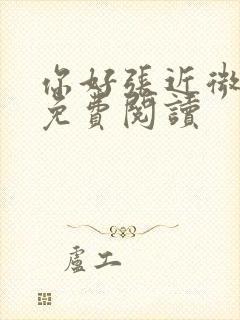 你好張近微
免費閱讀
盧工